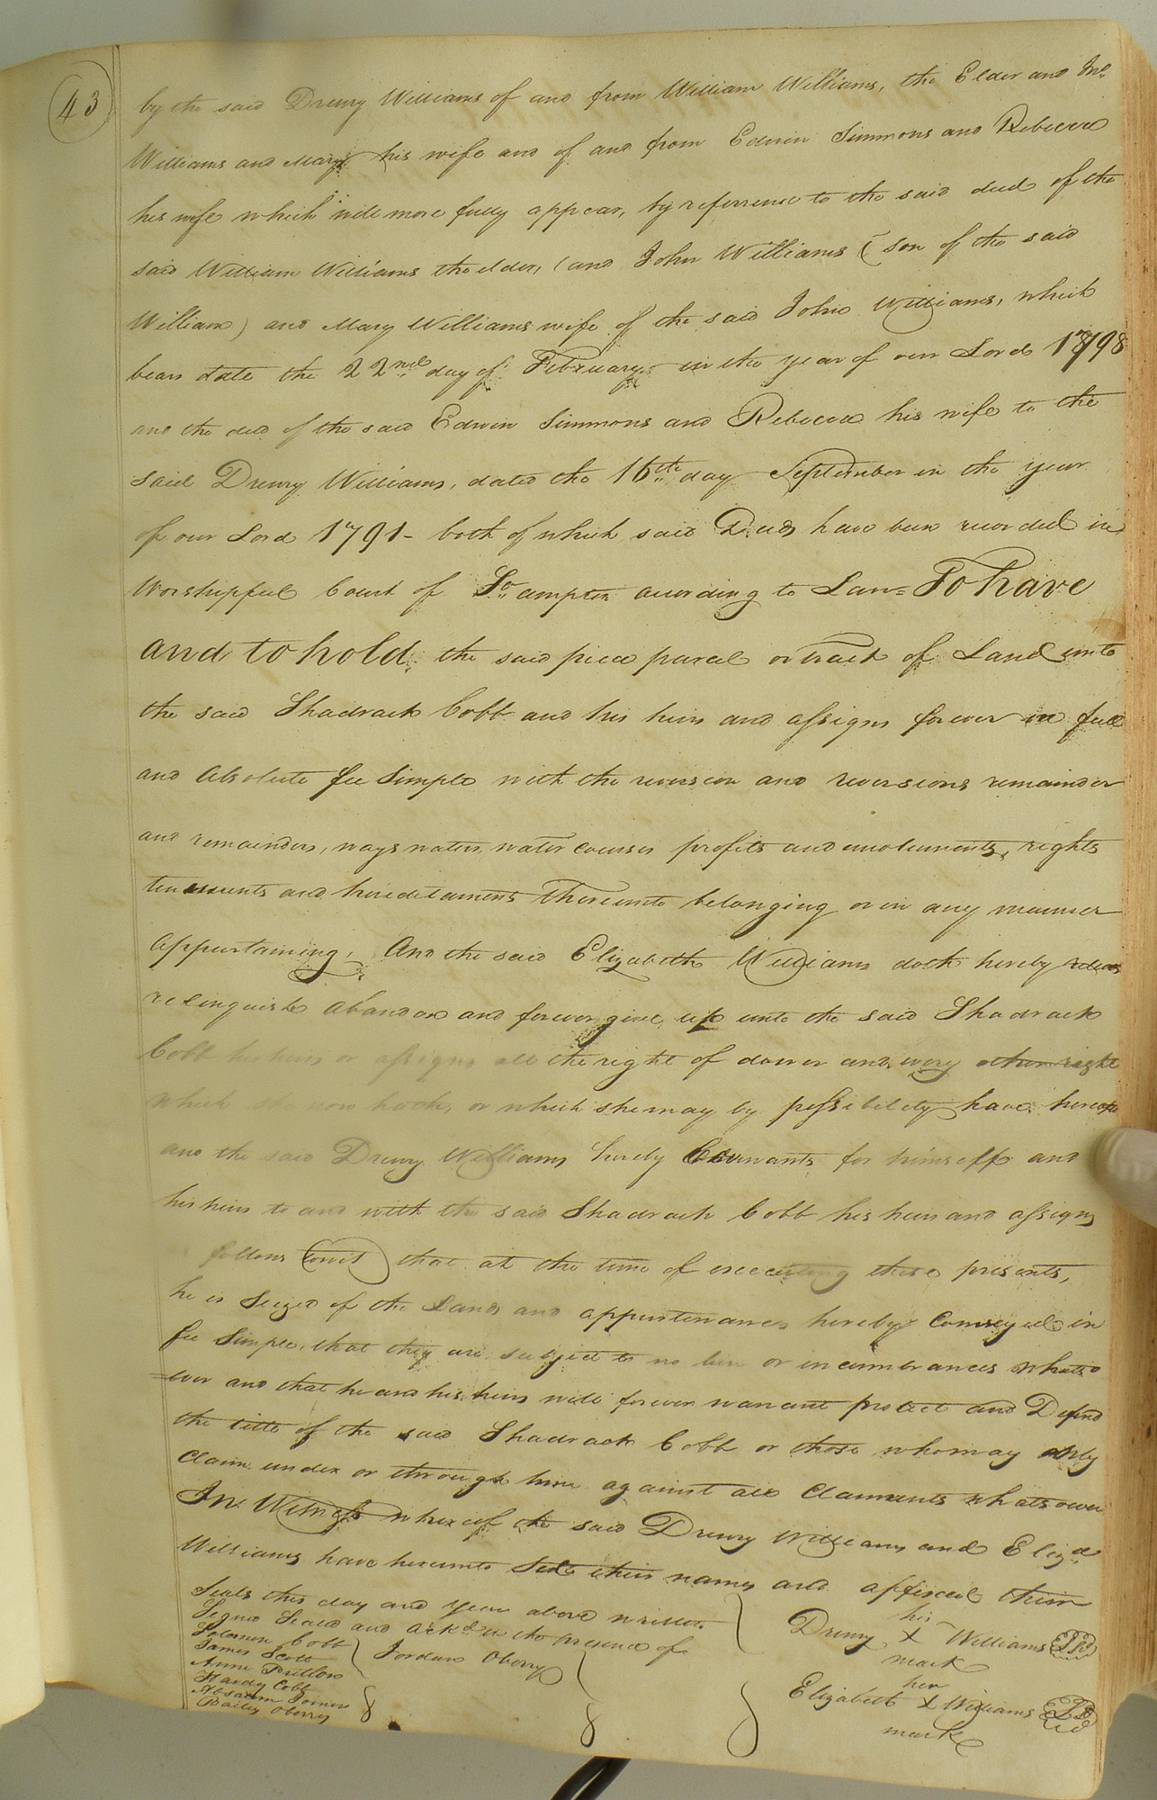 43
by the said Drewry Williams of and from William Williams, the Elder and Jno.
Williams and Mary his wife and of and from Edwin Simmons and Rebecca
his wife which will more fully appear, by referrence to the said deed of the
said William Williams the elder, (and John Williams (son of the said
William) and Mary Williams wife of the said John Williams, which
bears date the 22nd day of February in the year of our Lord 1798
and the deed of the said Edwin Simmons and Rebecca his wife to the
said Drewry Williams, dated the 16th day September in the year
of our Lord 1791 - both of which said Deeds have been recorded in
Worshipful Court of So.ampton according to Law = To have
and to hold the said piece parcel or tract of Land unto
the said Shadrack Cobb and his heirs and assigns forever in full
and Absolute fee Simple with the reversion and reversions remainder
and remainders, ways waters, water courses profits and emoluments, rights
tenements and heredetaments thereunto belonging or in any manner
appurtaining, And the said Elizabeth Williams doth hereby
relinguish abandon and forever give up unto the said Shadrack
Cobb his heirs or assigns all the right of dower and every other right
which she now hath, or which she may by possibility have hereafter
and the said Drewry Williams hereby Covenants for himself and
his heirs to and with the said Shadrack Cobb his heirs and assigns
follows (towit) that at the time of executing these presents,
he is Seized of the Lands and appurtenances hereby Conveyed in
fee Simple, that they are subject to no lien or incumbrances whatso
=ever and that he and his heirs will forever warrant protect and Defend
the title of the said Shadrack Cobb or those who may only
Claim under or through him against all Claimants whatsoever
In Witness whereof the said Drewry Williams and Elizath
Williams have hereunto Sett their names and affixed their
Seals this day and year above written.
Signed Sealed and Ackd in the presence of
Solomon Cobb
James Scott
Anne
Hardy Cobb
Absalom Joiner
Bailey Oberry
Jordan Oberry
his
Drewry X Williams
mark
her
Elizabeth X Williams
mark